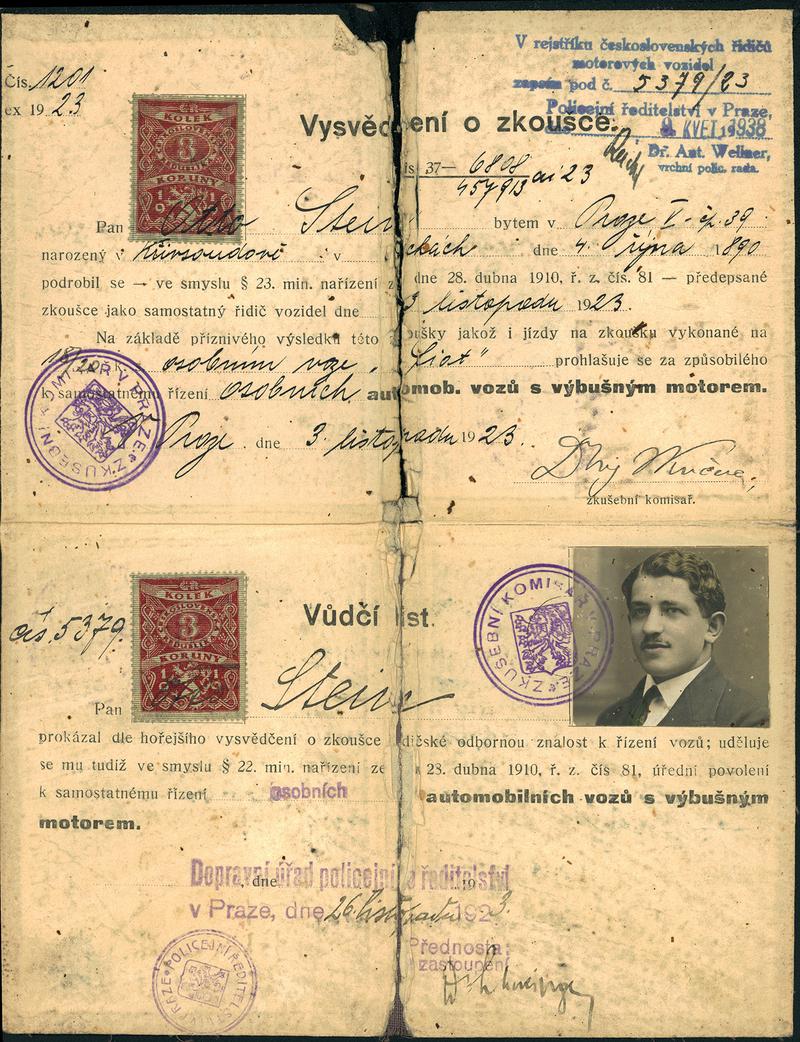 V rejstříku československých řidičů
motorových vozidel
zapsán pod č. 5379/23
Policejní ředitelství v Praze,
KVĚT. 1938
Dr. Ant. Wellner,
vrchní polic. rada.
Čís. 1201
ex 1923
KOLEK
8
KORUNY
Vysvědčení o zkoušce.
čís 37— 6808
457913 ai 23
Pan Otto Stein bytem v Praze V - čp. 39
narozený v v dne 4. října 1890
podrobil se — ve smyslu § 23. min. nařízení z dne 28. dubna 1910, ř. z. čís. 81 — předepsané
zkoušce jako samostatný řidič vozidel dne 3 listopadu 1923.
Na základě příznivého výsledku této zkoušky jakož i jízdy na zkoušku vykonané na
18/20 osobním voze „Fiat" prohlašuje se za způsobilého
k samostatnému řízení osobních automob. vozů s výbušným motorem.
V Praze dne 3. listopadu 1923.
zkušební komisař.
ZKUŠEBNÍ KOMISAŘ V PRAZE
KOLEK
8
KORUNY
čís. 5379.
Vůdčí list.
ZKUŠEBNÍ KOMISAŘ V PRAZE
Pan Stein
prokázal dle hořejšího vysvědčení o zkoušce řidičské odbornou znalost k řízení vozů; uděluje
se mu tudíž ve smyslu § 22. min. nařízení ze 28. dubna 1910, ř. z. čís 81, úřední povolení
k samostatnému řízení osobních automobilních vozů s výbušným
motorem.
, dne 19
Dopravní úřad policejního ředitelství
v Praze, dne 26 listopadu 1923.
Přednosta:
zastoupení
POLICEJNÍ ŘEDITELSTVÍ V PRAZE